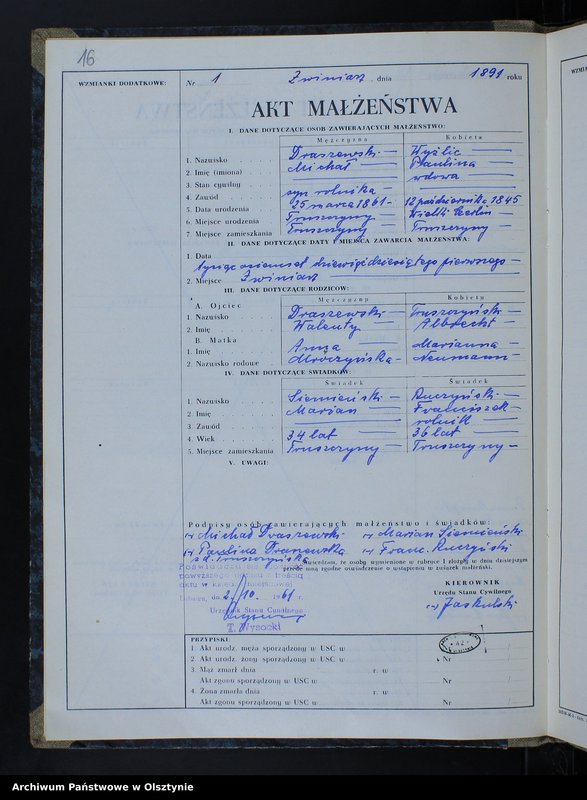 16
WZMIANKI DODATKOWE:
Nr 1 Zwiniarz, dnia 1891 roku
AKT MAŁŻEŃSTWA
I. DANE DOTYCZĄCE OSÓB ZAWIERAJĄCYCH MAŁŻEŃSTWO:
Mężczyzna Kobieta
1. Nazwisko Draszewski Wyżlic
2. Imię (imiona) Michał Paulina
3. Stan cywilny wdowa
4. Zawód syn rolnika
5. Data urodzenia 25 marca 1861 12 października 1845
6. Miejsce urodzenia Truszczyny Wielki
7. Miejsce zamieszkania Truszczyny Truszczyny
II. DANE DOTYCZĄCE DATY I MIEJSCA ZAWARCIA MAŁŻEŃSTWA:
1. Data
tysiąc osiemset dziewięćdziesiątego pierwszego
2. Miejsce Zwiniarz
III. DANE DOTYCZĄCE RODZICÓW:
Mężczyzny Kobiety
A. Ojciec
1. Nazwisko Draszewski Truszczyński
2. Imię Walenty Albrecht
B. Matka
1. Imię Anna Marianna
2. Nazwisko rodowe Mroczyńska Neumann
IV. DANE DOTYCZĄCE ŚWIADKÓW:
Świadek Świadek
1. Nazwisko Siemieński Ruczyński
2. Imię Marian Franciszek
3. Zawód rolnik
4. Wiek 34 lat 36 lat
5. Miejsce zamieszkania Truszczyny Truszczyny
V. UWAGI:
Podpisy osób zawierających małżeństwo i świadków:
Michał Draszewski Marian Siemieński
Paulina Draszewska Franc. Ruczyński
Stwierdzam, że osoby wymienione w rubryce I złożyły w dniu dzisiejszym
przede mną zgodne oświadczenie o wstąpieniu w związek małżeński.
Poświadcza się
powyższego z treścią
aktu w księdze
dn. 2/10 1961 r.
Urzędnik Stanu Cywilnego
T. Wysocki
KIEROWNIK
Urzędu Stanu Cywilnego
Jaskulski
PRZYPISKI:
1. Akt urodz. męża sporządzony w USC w
2. Akt urodz. żony sporządzony w USC w Nr
3. Mąż zmarł dnia r. w
Akt zgonu sporządzony w USC w Nr
4. Żona zmarła dnia r. w
Akt zgonu sporządzony w USC w Nr
Archiwum Państwowe w Olsztynie